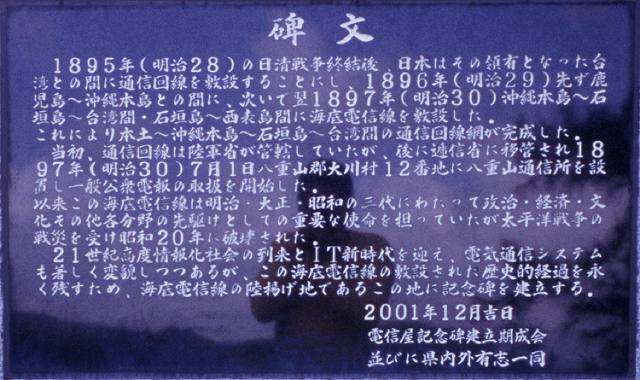 碑文
1895年(明治28)の日清戦争終結後、日本はその領有となった台
湾との間に通信回線を敷設することにし、1896年(明治29)先ず鹿
児島～沖縄本島との間に、次いで翌1897年(明治30)沖縄本島～石
垣島～台湾間・石垣島～西表島間に海底電信線を敷設した。
これにより本土～沖縄本島～石垣島～台湾間の通信回線網が完成した。
当初、通信回線は陸軍省が管轄していたが、後に逓信省に移管され18
97年(明治30)7月1日八重山郡大川村12番地に八重山通信所を設
置し一般公衆電報の取扱を開始した。
以来この海底電信線は明治・大正・昭和の三代にわたって政治・経済・文
化その他各分野の先駆けとしての重要な使命を担っていたが太平洋戦争の
戦災を受け昭和20年に破壊された。
21世紀高度情報化社会の到来とIT新時代を迎え、電気通信システム
も著しく変貌しつつあるが、この海底電信線の敷設された歴史的経過を永
く残すため、海底電信線の陸揚げ地であるこの地に記念碑を建立する。
2001年12月吉日
電信屋記念碑建立期成会
並びに県内外有志一同